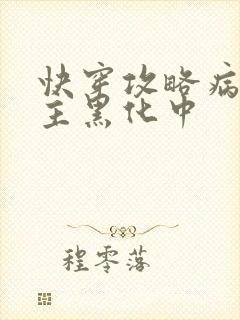 快穿攻略病
主黑化中
程零落